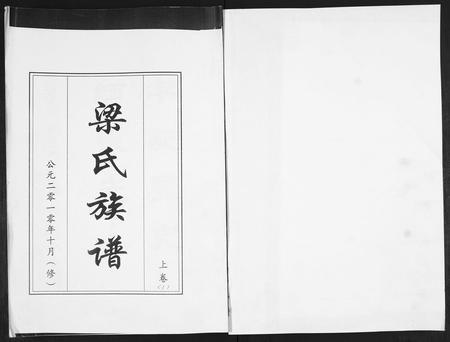 梁氏族谱
上卷
公元二零一零年十月(修)